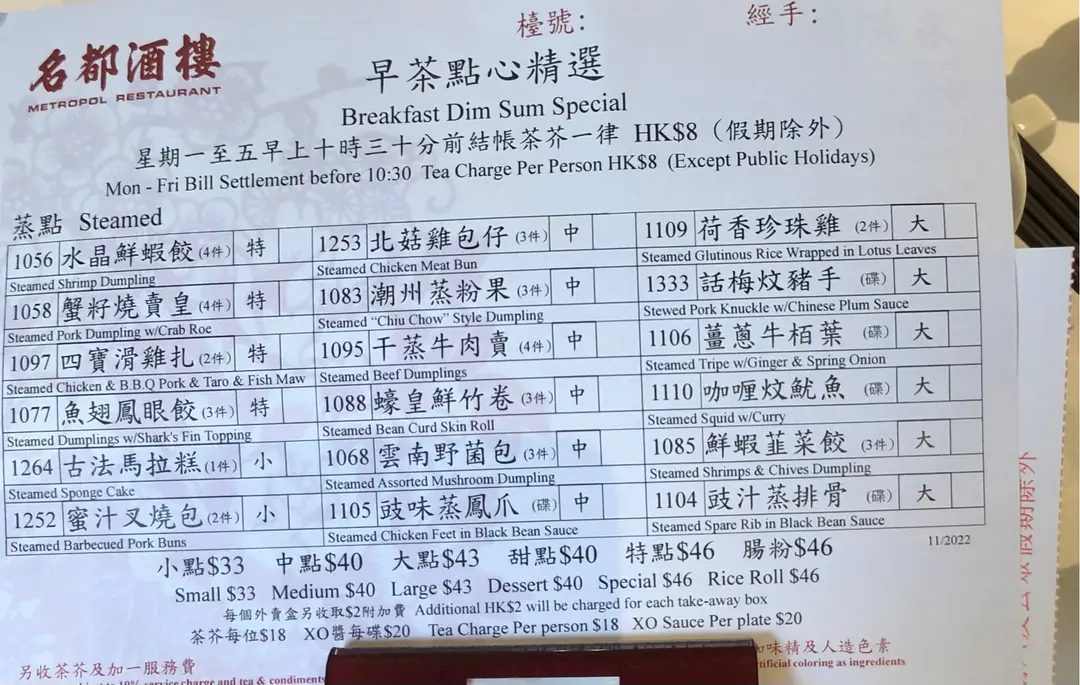 檯號: 經手:
名都酒樓
METROPOL RESTAURANT
早茶點心精選
Breakfast Dim Sum Special
星期一至五早上十時三十分前結帳茶芥一律 HK$8（假期除外）
Mon - Fri Bill Settlement before 10:30 Tea Charge Per Person HK$8 (Except Public Holidays)
蒸點 Steamed
1056 水晶鮮蝦餃 (4件) 特
Steamed Shrimp Dumpling
1058 蟹籽燒賣皇 (4件) 特
Steamed Pork Dumpling w/Crab Roe
1097 四寶滑雞扎 (2件) 特
Steamed Chicken & B.B.Q Pork & Taro & Fish Maw
1077 魚翅鳳眼餃 (3件) 特
Steamed Dumplings w/Shark's Fin Topping
1264 古法馬拉糕 (1件) 小
Steamed Sponge Cake
1252 蜜汁叉燒包 (2件) 小
Steamed Barbecued Pork Buns
1253 北菇雞包仔 (3件) 中
Steamed Chicken Meat Bun
1083 潮州蒸粉果 (3件) 中
Steamed “Chiu Chow” Style Dumpling
1095 干蒸牛肉賣 (4件) 中
Steamed Beef Dumplings
1088 蠔皇鮮竹卷 (3件) 中
Steamed Bean Curd Skin Roll
1068 雲南野菌包 (3件) 中
Steamed Assorted Mushroom Dumpling
1105 豉味蒸鳳爪 (碟) 中
Steamed Chicken Feet in Black Bean Sauce
1109 荷香珍珠雞 (2件) 大
Steamed Glutinous Rice Wrapped in Lotus Leaves
1333 話梅炆豬手 (碟) 大
Stewed Pork Knuckle w/Chinese Plum Sauce
1106 薑蔥牛栢葉 (碟) 大
Steamed Tripe w/Ginger & Spring Onion
1110 咖喱炆魷魚 (碟) 大
Steamed Squid w/Curry
1085 鮮蝦韮菜餃 (3件) 大
Steamed Shrimps & Chives Dumpling
1104 豉汁蒸排骨 (碟) 大
Steamed Spare Rib in Black Bean Sauce
11/2022
小點$33 中點$40 大點$43 甜點$40 特點$46 腸粉$46
Small $33 Medium $40 Large $43 Dessert $40 Special $46 Rice Roll $46
每個外賣盒另收取$2附加費 Additional HK$2 will be charged for each take-away box
茶芥每位$18 XO醬每碟$20 Tea Charge Per person $18 XO Sauce Per plate $20
另收茶芥及加一服務費
10% service charge and tea & condiments
味精及人造色素
coloring as ingredients
假期除外